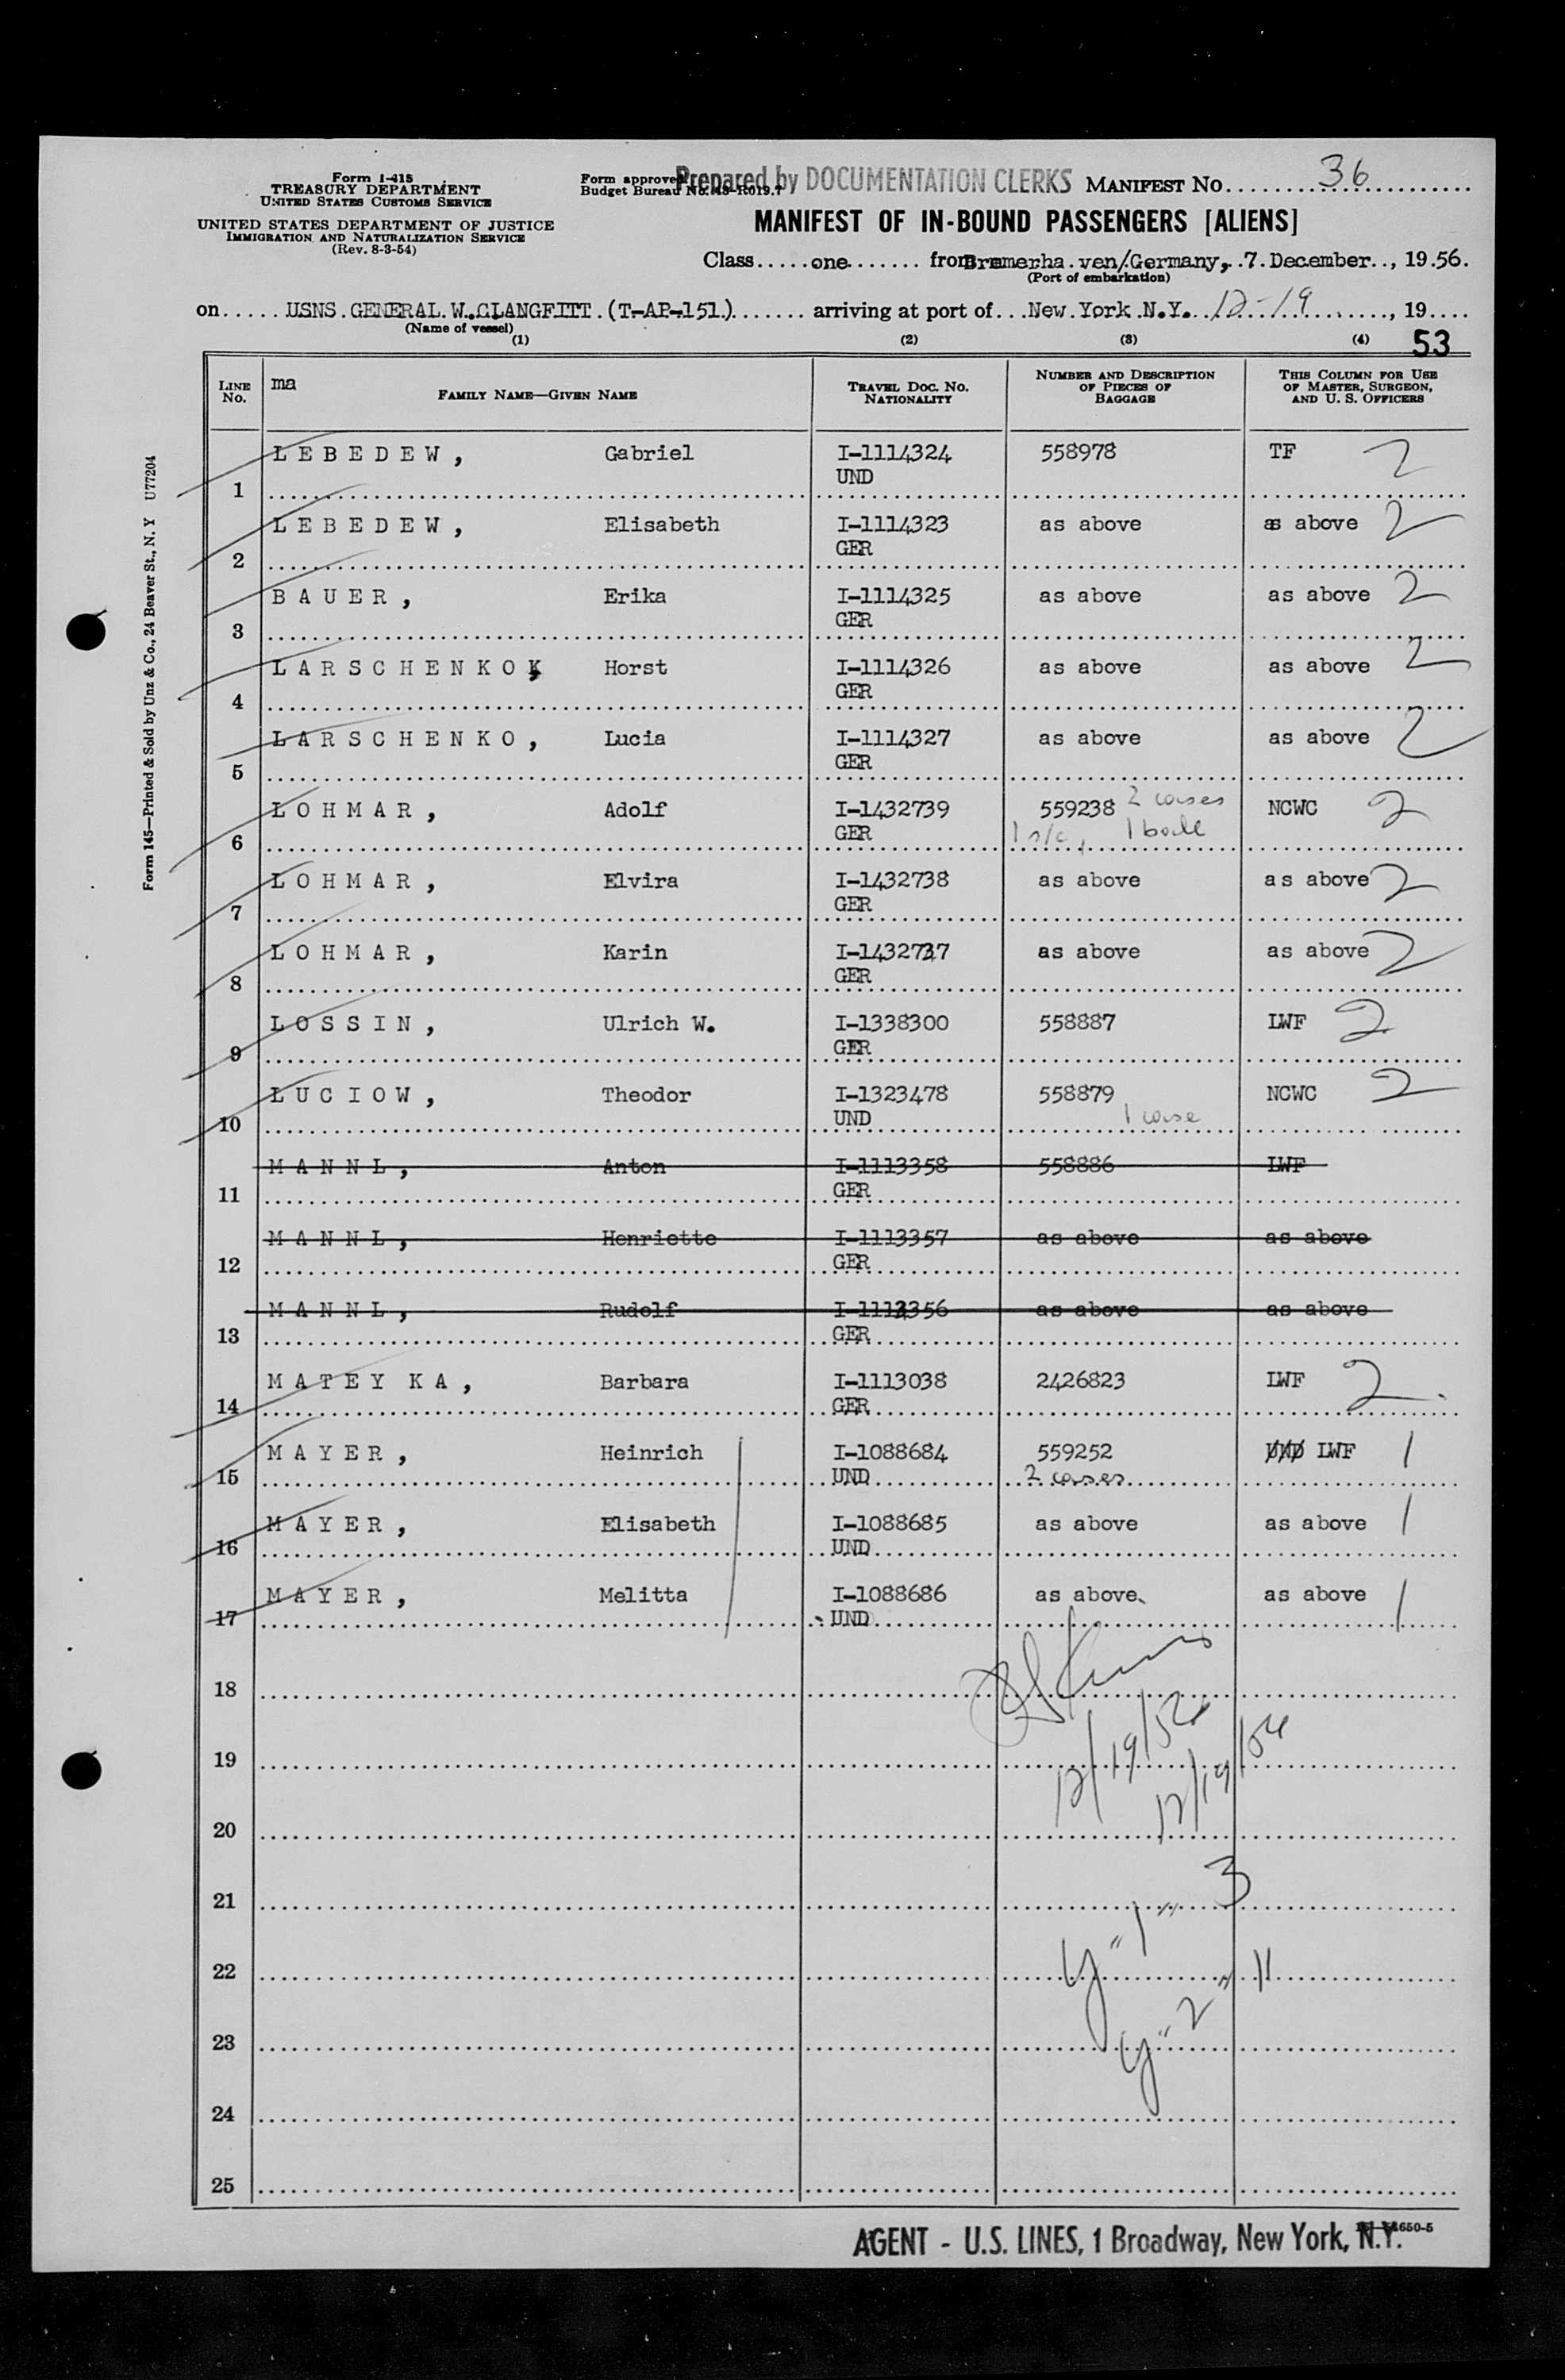 Form I-415
TREASURY DEPARTMENT
UNITED STATES CUSTOMS SERVICE
UNITED STATES DEPARTMENT OF JUSTICE
IMMIGRATION AND NATURALIZATION SERVICE
(Rev. 8-3-54)
Form approved
Budget Bureau No. 43-R019.7
Prepared by DOCUMENTATION CLERKS
MANIFEST NO. 36
MANIFEST OF IN-BOUND PASSENGERS [ALIENS]
Class one from Bremerha.ven/.Germany, 7. December, 1956.
(Port of embarkation)
on USNS. GENERAL. W.. CLANGFITT. (T-AP-151.) arriving at port of New York N.Y. 12-19, 19
(Name of vessel)
(1) (2) (3) (4) 53
LINE No. ma FAMILY NAME—GIVEN NAME TRAVEL DOC. NO. NATIONALITY NUMBER AND DESCRIPTION OF PIECES OF BAGGAGE THIS COLUMN FOR USE OF MASTER, SURGEON, AND U. S. OFFICERS
LEBEDEW, Gabriel I-1114324 558978 TF 2
1 UND
LEBEDEW, Elisabeth I-1114323 as above as above 2
2 GER
BAUER, Erika I-1114325 as above as above 2
3 GER
LARSCHENKO, Horst I-1114326 as above as above 2
4 GER
LARSCHENKO, Lucia I-1114327 as above as above 2
5 GER
LOHMAR, Adolf I-1432739 559238 2 cases NCWC 2
6 GER 1 s/c, 1 bale
LOHMAR, Elvira I-1432738 as above as above 2
7 GER
LOHMAR, Karin I-1432737 as above as above 2
8 GER
LOSSIN, Ulrich W. I-1338300 558887 LWF 2
9 GER
LUCIOW, Theodor I-1323478 558879 NCWC 2
10 UND 1 case
MANNL, Anton I-1113358 558886 LWF
11 GER
MANNL, Henriette I-1113357 as above as above
12 GER
MANNL, Rudolf I-1113356 as above as above
13 GER
MATEY KA, Barbara I-1113038 2426823 LWF 2
14 GER
MAYER, Heinrich I-1088684 559252 UND LWF 1
15 UND 2 cases
MAYER, Elisabeth I-1088685 as above as above 1
16 UND
MAYER, Melitta I-1088686 as above as above 1
17 UND
18
19
12/19/56
12/19/56
20
21
y "1" 3
22
y "2" 11
23
24
25
Form 145—Printed & Sold by Unz & Co., 24 Beaver St., N. Y U77204
AGENT - U.S. LINES, 1 Broadway, New York, N.Y.